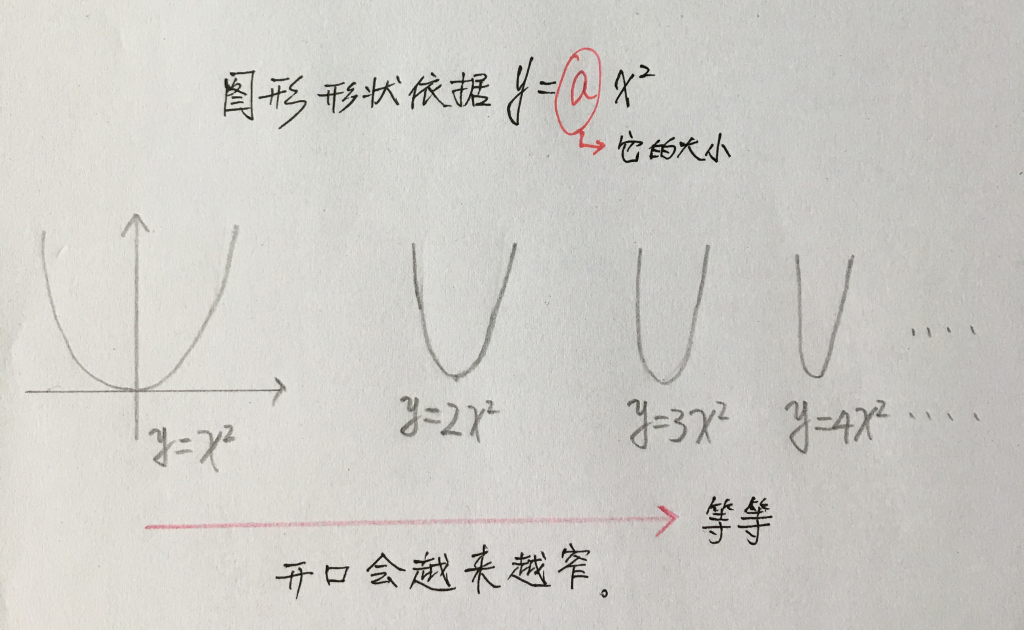 图形形状依据 y=ax²
它的大小
....
y=x² y=2x² y=3x² y=4x² ....
等等
开口会越来越窄。